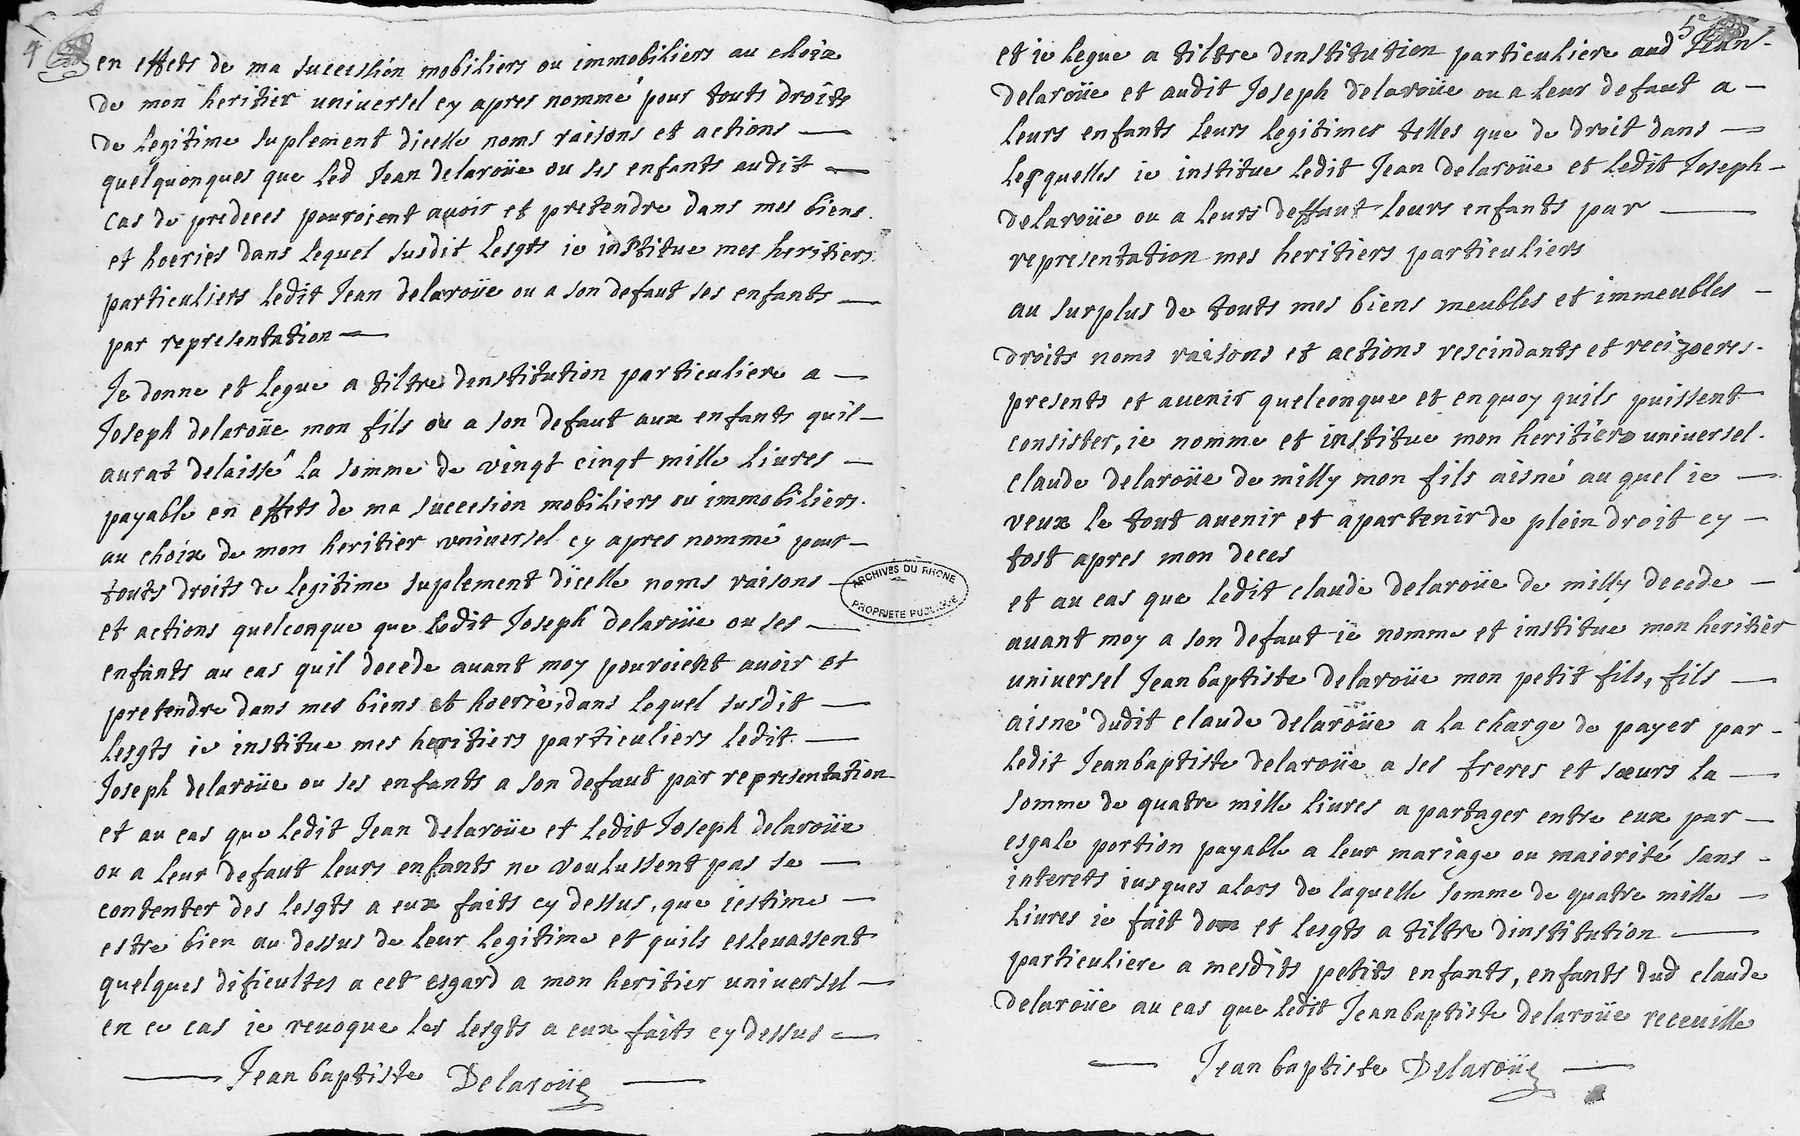 4
en effets de ma succession mobiliers ou immobiliers au choix
de mon heritier universel cy apres nommé pour touts droits
de legitime suplement dicelle noms raisons et actions
quelquonques que led Jean delaroüe ou ses enfants audit
cas de predeces pouroient avoir et pretendre dans mes biens
et hoeries dans lequel susdit lesgts ie institue mes heritiers
particuliers ledit Jean delaroüe ou a son defaut ses enfants
par representation
Je donne et legue a tiltre dinstitution particuliere a
Joseph delaroüe mon fils ou a son defaut aux enfants quil
aurat delaissé la somme de vingt cinqt mille livres
payable en effets de ma succesion mobiliers ou immobiliers
au choix de mon heritier universel cy apres nommé pour
touts droits de legitime suplement dïcelle noms raisons
et actions quelconque que ledit Joseph delaroüe ou ses
enfants au cas quil decede avant moy pouroient avoir et
pretendre dans mes biens et hoerie, dans lequel susdit
lesgts ie institue mes heritiers particuliers ledit
Joseph delaroüe ou ses enfants a son defaut par representation
et au cas que ledit Jean delaroüe et ledit Joseph delaroüe
ou a leur defaut leurs enfants ne voulussent pas se
contenter des lesgts a eux faits cy dessus, que iestime
estre bien au dessus de leur legitime et quils eslevassent
quelques dificultes a cet esgard a mon heritier universel
en ce cas ie revoque les lesgts a eux faits cy dessus
Jean baptiste Delaroüe
ARCHIVES DU RHONE
PROPRIETE PUBLIQUE
5e
et ie legue a tiltre dinstitution particuliere aud Jean
delaroüe et audit Joseph delaroüe ou a leur defaut a
leurs enfants leurs legitimes telles que de droit dans
lesquelles ie institue ledit Jean delaroüe et ledit Joseph
delaroüe ou a leurs deffaut leurs enfants par
representation mes heritiers particuliers
au surplus de touts mes biens meubles et immeubles
droits noms raisons et actions rescindants et recizoeres
presents et avenir quelconque et en quoy quils puissent
consister, ie nomme et institue mon heritier universel
claude delaroüe de milly mon fils aisné au quel ie
veux le tout avenir et apartenir de plein droit cy
tost apres mon deces
et au cas que ledit claude delaroüe de milly decede
avant moy a son defaut ie nomme et institue mon heritier
universel Jean baptiste delaroüe mon petit fils, fils
aisné dudit claude delaroüe a la charge de payer par
ledit Jeanbaptiste delaroüe a ses freres et sœurs la
somme de quatre mille livres a partager entre eux par
esgale portion payable a leur mariage ou maiorité sans
interets iusques alors de laquelle somme de quatre mille
livres ie fait don et lesgts a tiltre dinstitution
particuliere a mesdits petits enfants, enfants dud claude
delaroüe au cas que ledit Jeanbaptiste delaroüe receuille
Jean baptiste Delaroüe